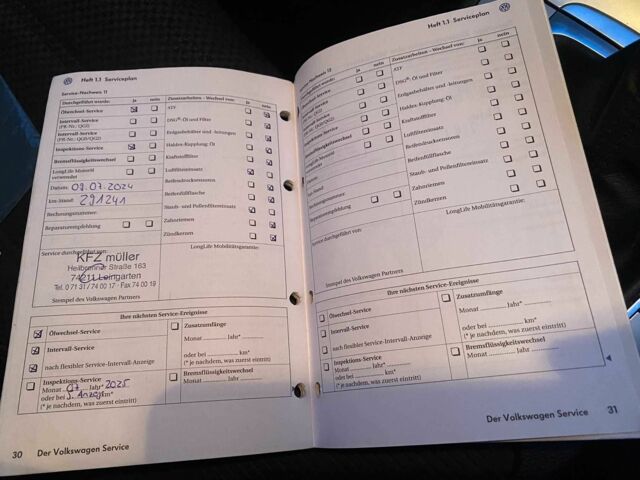 Heft 1.1 Serviceplan
Service-Nachweis 11
Durchgeführt wurde: ja nein
Ölwechsel-Service
Intervall-Service
(PR-Nr.: QG1)
Intervall-Service
(PR-Nr.: QG0/QG2)
Inspektions-Service
Bremsflüssigkeitswechsel
LongLife Motoröl
verwendet
Datum: 09.07.2024
km-Stand: 291241
Rechnungsnummer:
Reparaturempfehlung
Zusatzarbeiten - Wechsel von: ja nein
ATF
DSG®: Öl und Filter
Erdgasbehälter und -leitungen
Haldex-Kupplung: Öl
Kraftstofffilter
Luftfiltereinsatz
Reifendrucksensoren
Reifenfüllflasche
Staub- und Pollenfiltereinsatz
Zahnriemen
Zündkerzen
Service durchgeführt von:
KFZ müller
Heilbronner Straße 163
74211 Leingarten
Tel. 0 71 31 / 74 00 17 · Fax 74 00 19
Stempel des Volkswagen Partners
LongLife Mobilitätsgarantie:
Ihre nächsten Service-Ereignisse
Ölwechsel-Service
Intervall-Service
nach flexibler Service-Intervall-Anzeige
Inspektions-Service
Monat 07 Jahr* 2025
oder bei km*
(* je nachdem, was zuerst eintritt)
Zusatzumfänge
Monat Jahr*
oder bei km*
(* je nachdem, was zuerst eintritt)
Bremsflüssigkeitswechsel
Monat Jahr
30 Der Volkswagen Service
Heft 1.1 Serviceplan
ja nein
Zusatzarbeiten - Wechsel von: ja nein
ATF
DSG®: Öl und Filter
Erdgasbehälter und -leitungen
Haldex-Kupplung: Öl
Kraftstofffilter
Luftfiltereinsatz
Reifendrucksensoren
Reifenfüllflasche
Staub- und Pollenfiltereinsatz
Zahnriemen
Zündkerzen
Rechnungsnummer:
Reparaturempfehlung
Service durchgeführt von:
Stempel des Volkswagen Partners
LongLife Mobilitätsgarantie:
Ihre nächsten Service-Ereignisse
Ölwechsel-Service
Intervall-Service
nach flexibler Service-Intervall-Anzeige
Inspektions-Service
Monat Jahr*
oder bei km*
(* je nachdem, was zuerst eintritt)
Zusatzumfänge
Monat Jahr*
oder bei km*
(* je nachdem, was zuerst eintritt)
Bremsflüssigkeitswechsel
Monat Jahr
Der Volkswagen Service 31